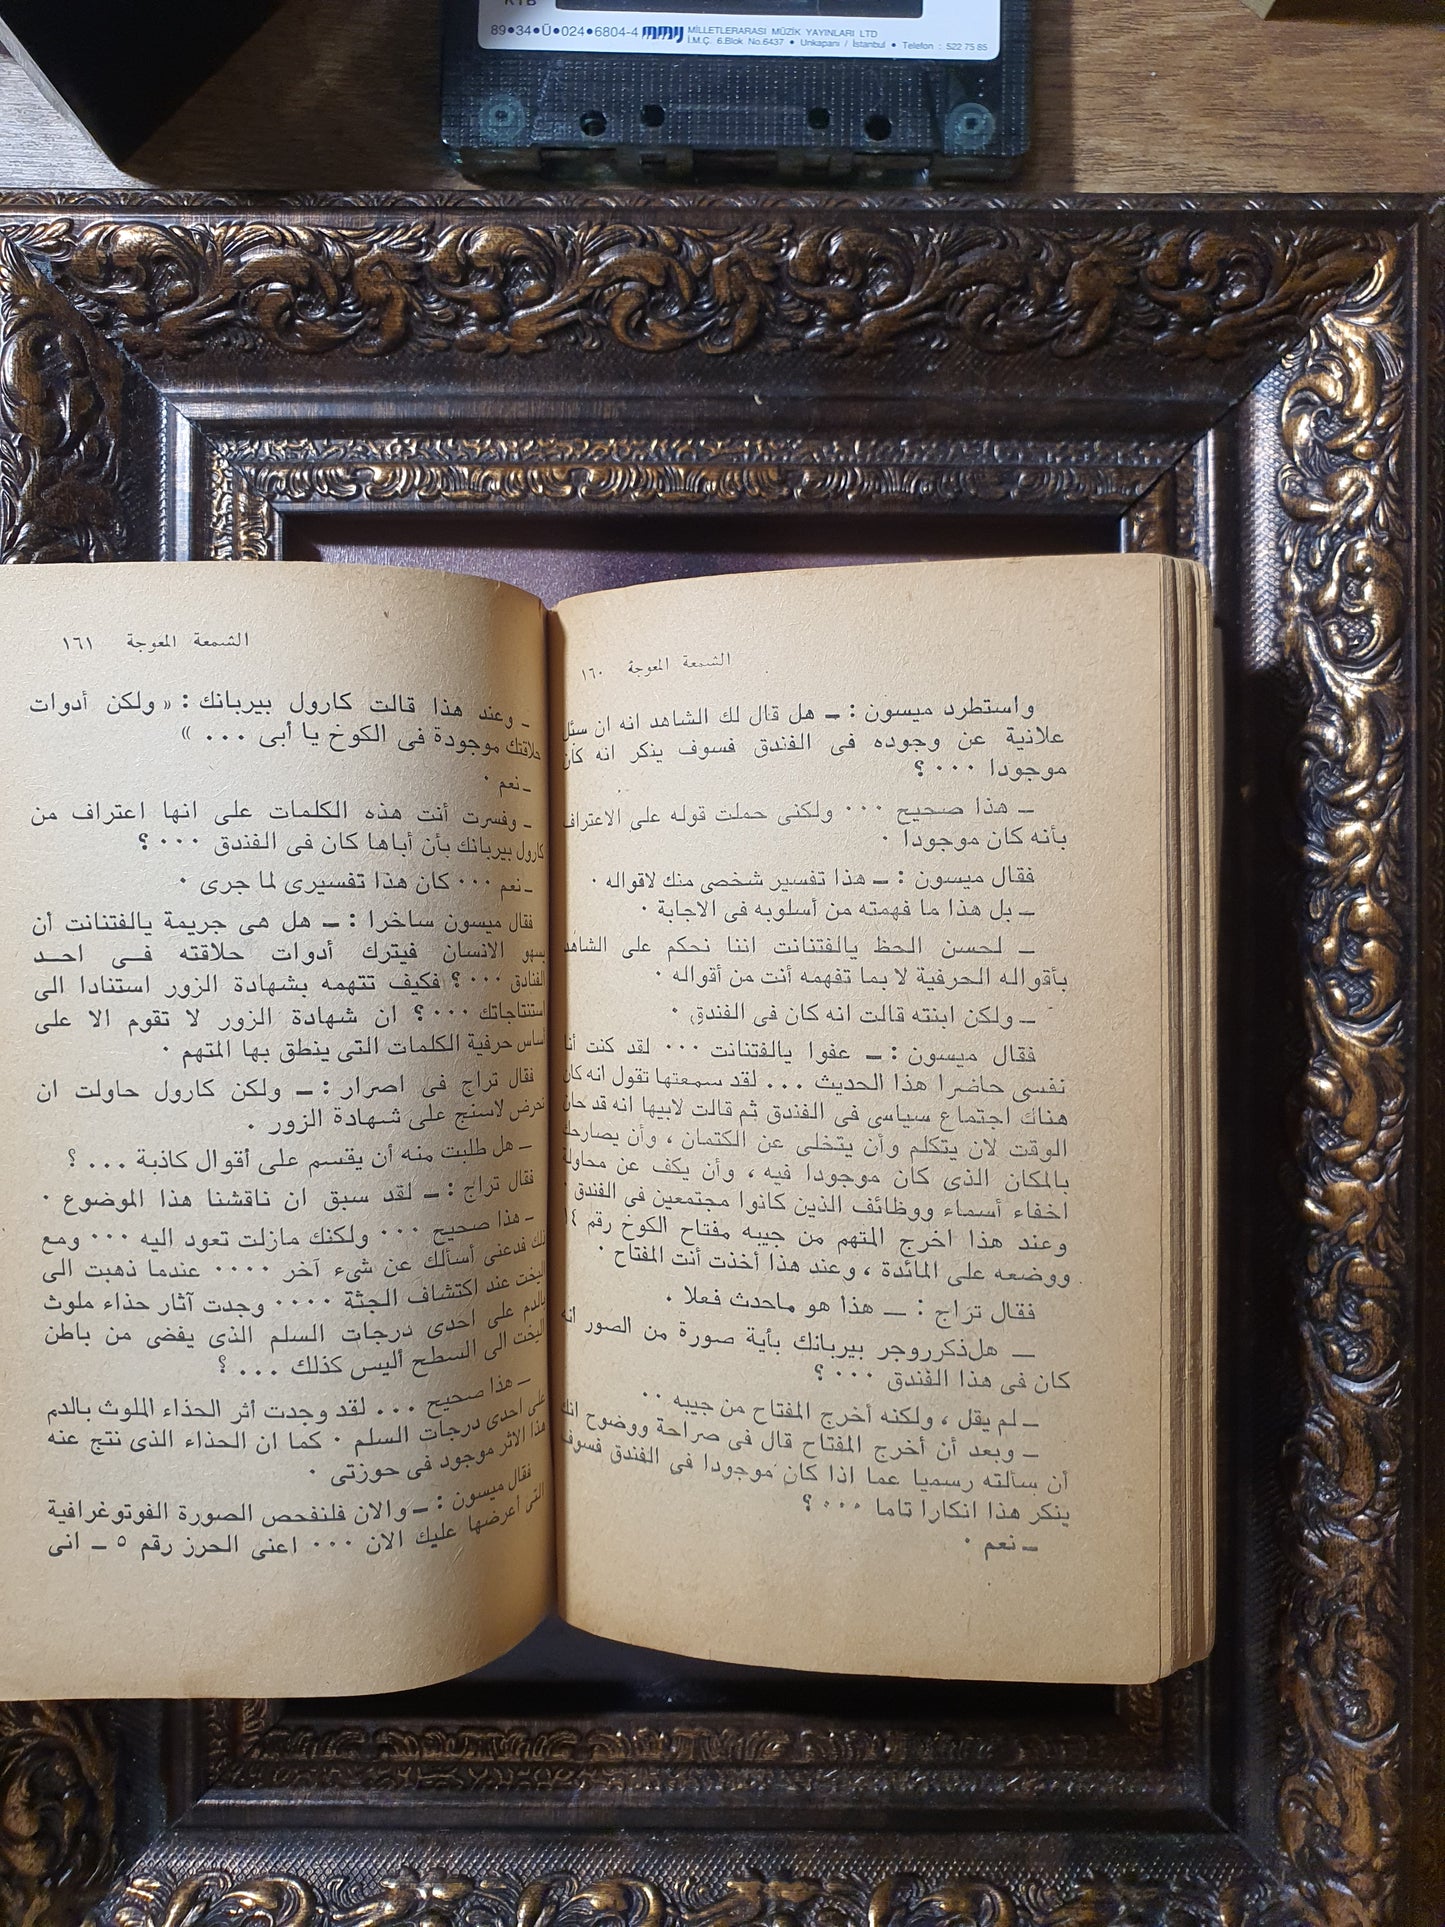 KTB
89•34•Ü•024•6804-4 MILLETLERARASI MÜZİK YAYINLARI LTD
İ.M.Ç. 6.Blok No.6437 • Unkapanı / İstanbul • Telefon : 522 75 85
الشمعة المعوجة ١٦٠
واستطرد ميسون : ـ هل قال لك الشاهد انه ان سئل
علانية عن وجوده فى الفندق فسوف ينكر انه كان
موجودا ٠٠٠ ؟
ـ هذا صحيح ٠٠٠ ولكنى حملت قوله على الاعتراف
بأنه كان موجودا ٠
فقال ميسون : ـ هذا تفسير شخصى منك لاقواله ٠
ـ بل هذا ما فهمته من أسلوبه فى الاجابة ٠
ـ لحسن الحظ يالفتنانت اننا نحكم على الشاهد
بأقواله الحرفية لا بما تفهمه أنت من أقواله ٠
ـ ولكن ابنته قالت انه كان فى الفندق ٠
فقال ميسون : ـ عفوا يالفتنانت ٠٠٠ لقد كنت أنا
نفسى حاضرا هذا الحديث ٠٠٠ لقد سمعتها تقول انه كان
هناك اجتماع سياسى فى الفندق ثم قالت لابيها انه قد حان
الوقت لان يتكلم وأن يتخلى عن الكتمان ، وأن يصارحك
بالمكان الذى كان موجودا فيه ، وأن يكف عن محاولة
اخفاء أسماء ووظائف الذين كانوا مجتمعين فى الفندق ٠
وعند هذا اخرج المتهم من جيبه مفتاح الكوخ رقم ١٤
ووضعه على المائدة ، وعند هذا أخذت أنت المفتاح ٠
فقال تراج : ـ هذا هو ماحدث فعلا ٠
ـ هل ذكر روجر بيربانك بأية صورة من الصور انه
كان فى هذا الفندق ٠٠٠ ؟
ـ لم يقل ، ولكنه أخرج المفتاح من جيبه ٠٠
ـ وبعد أن أخرج المفتاح قال فى صراحة ووضوح انك
أن سألته رسميا عما اذا كان موجودا فى الفندق فسوف
ينكر هذا انكارا تاما ٠٠٠ ؟
ـ نعم ٠
الشمعة المعوجة ١٦١
ـ وعند هذا قالت كارول بيربانك : « ولكن أدوات
حلاقتك موجودة فى الكوخ يا أبى ٠٠٠ »
ـ نعم ٠
ـ وفسرت أنت هذه الكلمات على انها اعتراف من
كارول بيربانك بأن أباها كان فى الفندق ٠٠٠ ؟
ـ نعم ٠٠٠ كان هذا تفسيرى لما جرى ٠
فقال ميسون ساخرا : ـ هل هى جريمة يالفتنانت أن
يسهو الانسان فيترك أدوات حلاقته فى احد
الفنادق ٠٠٠ ؟ فكيف تتهمه بشهادة الزور استنادا الى
استنتاجاتك ٠٠٠ ؟ ان شهادة الزور لا تقوم الا على
أساس حرفية الكلمات التى ينطق بها المتهم ٠
فقال تراج فى اصرار : ـ ولكن كارول حاولت ان
تحرض لاسنج على شهادة الزور ٠
ـ هل طلبت منه أن يقسم على أقوال كاذبة ٠٠٠ ؟
فقال تراج : ـ لقد سبق ان ناقشنا هذا الموضوع ٠
ـ هذا صحيح ٠٠٠ ولكنك مازلت تعود اليه ٠٠٠ ومع
ذلك فدعنى أسألك عن شىء آخر ٠٠٠٠ عندما ذهبت الى
اليخت عند اكتشاف الجثة ٠٠٠٠ وجدت آثار حذاء ملوث
بالدم على احدى درجات السلم الذى يفضى من باطن
اليخت الى السطح أليس كذلك ٠٠٠ ؟
ـ هذا صحيح ٠٠٠ لقد وجدت أثر الحذاء الملوث بالدم
على احدى درجات السلم ٠ كما ان الحذاء الذى نتج عنه
هذا الاثر موجود فى حوزتى ٠
فقال ميسون : ـ والان فلنفحص الصورة الفوتوغرافية
التى اعرضها عليك الان ٠٠٠ اعنى الحرز رقم ٥ ـ انى